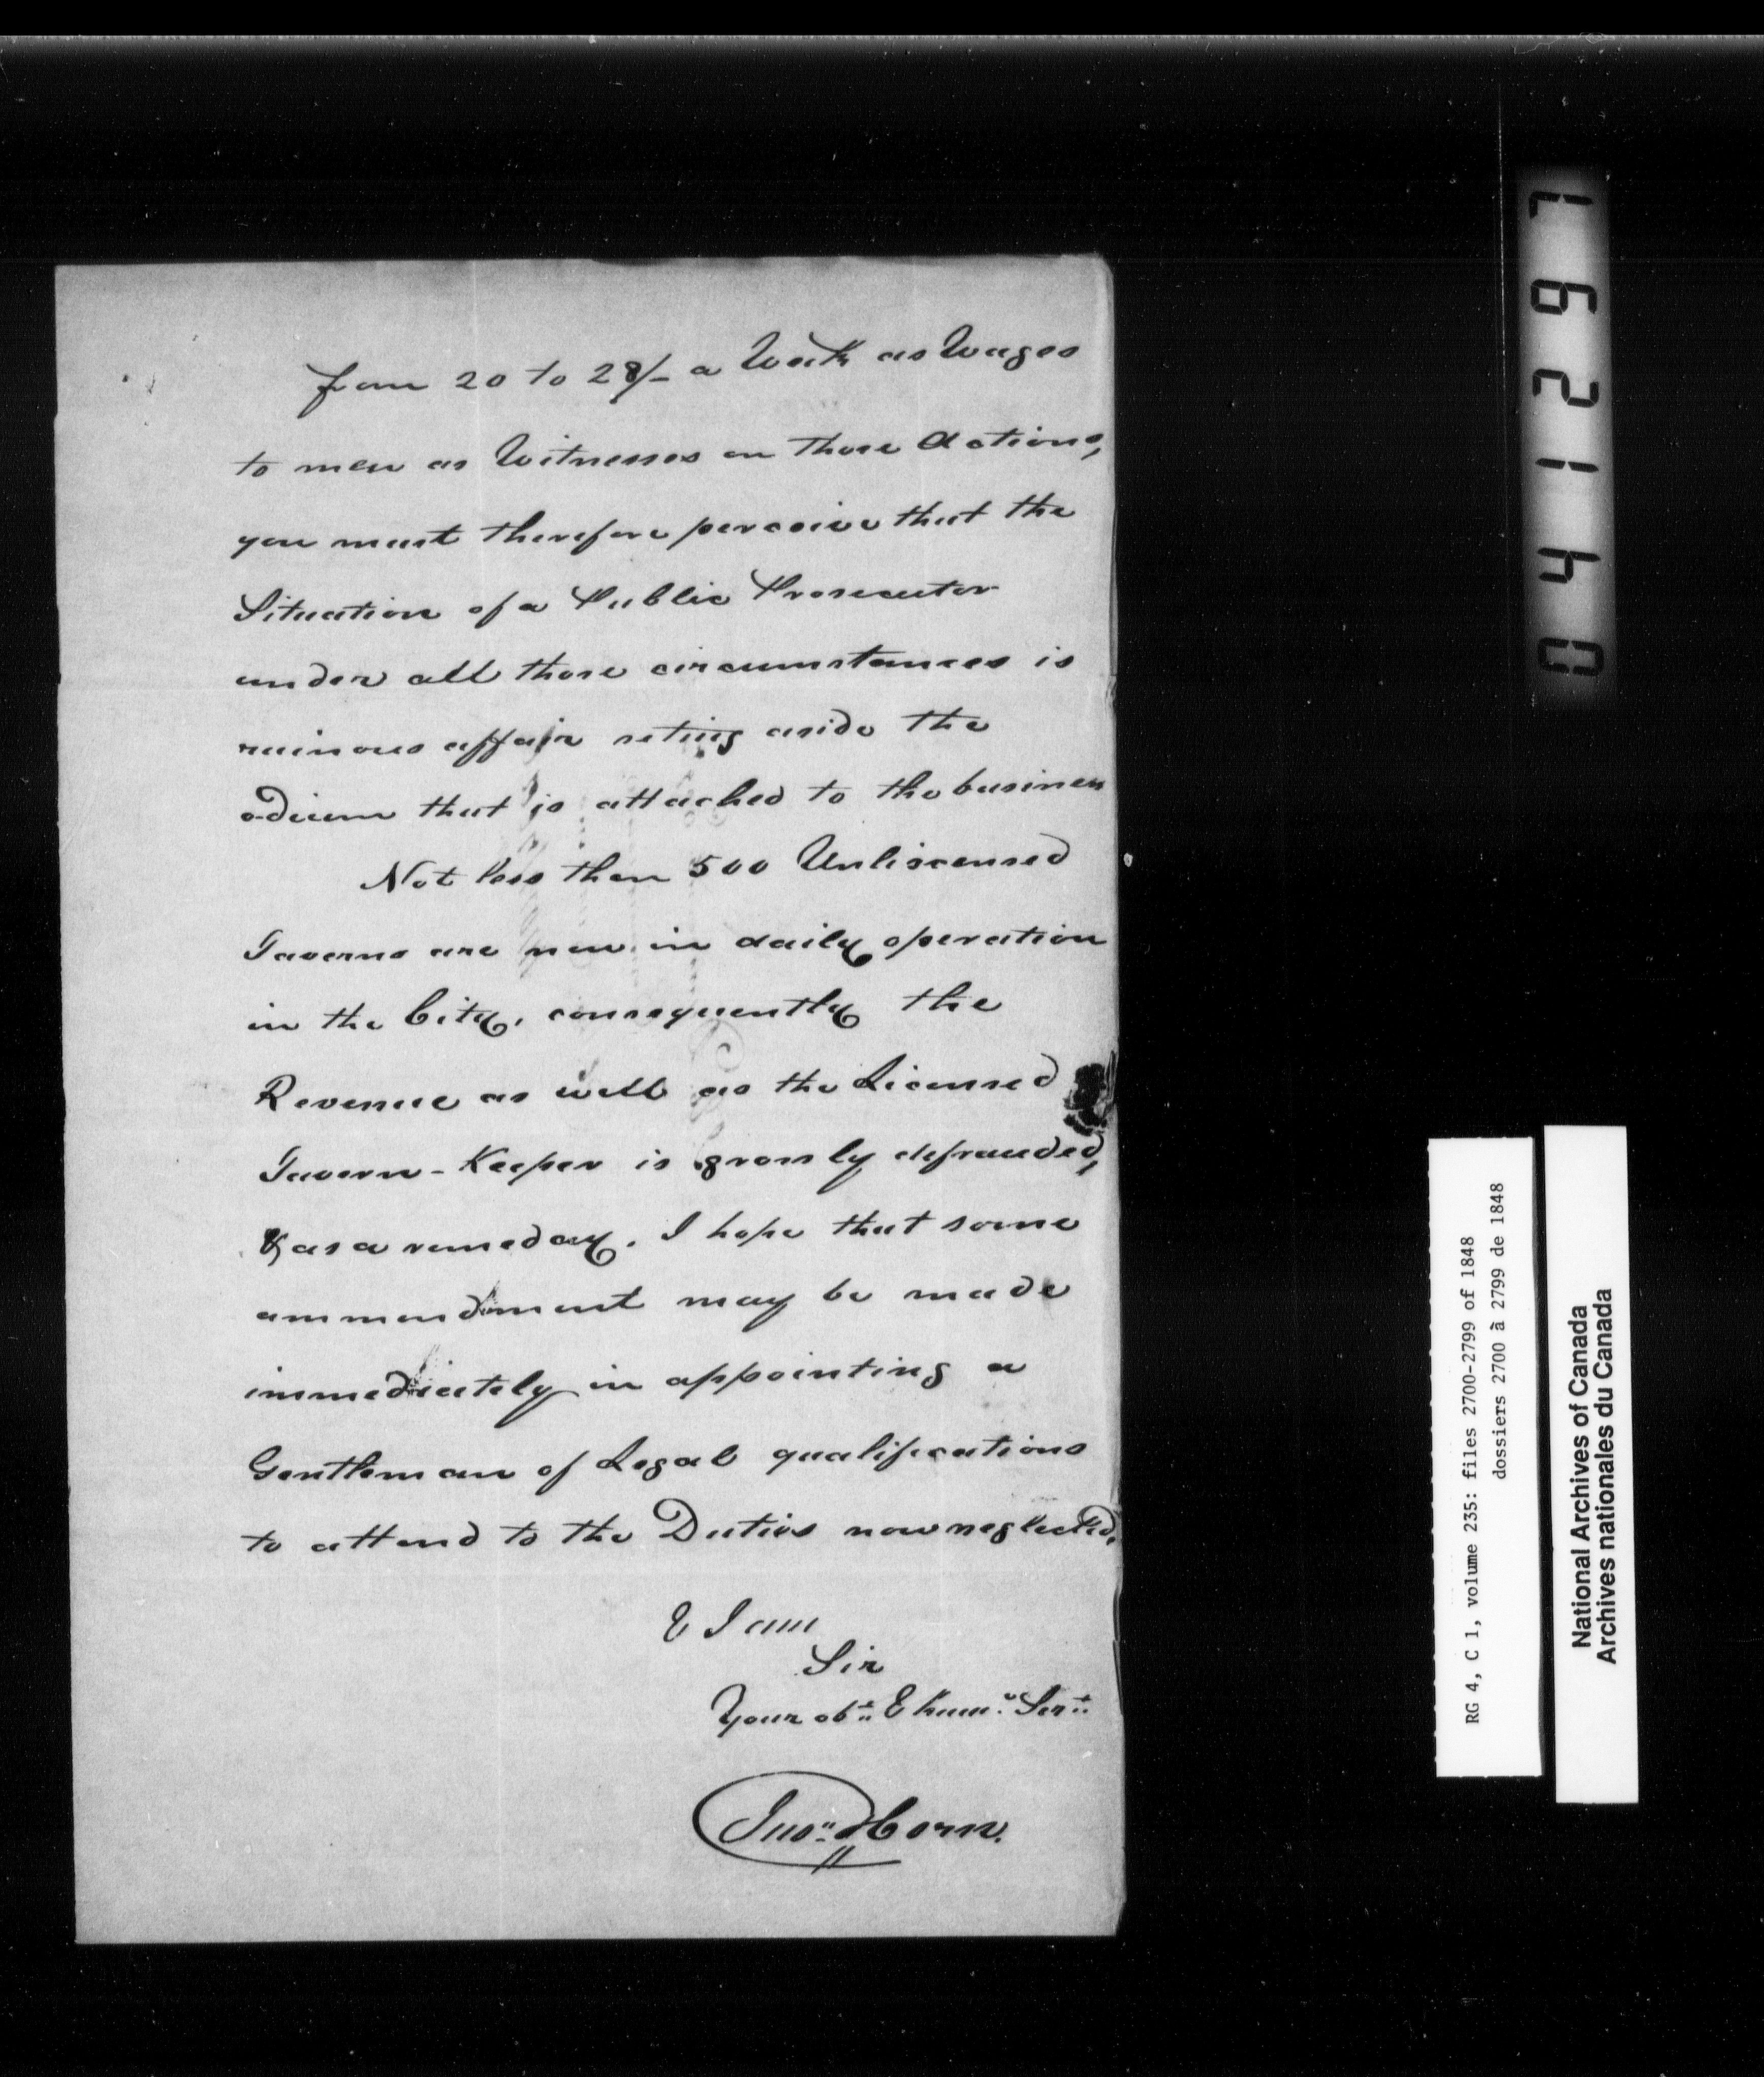 from 20 to 28/- a Week as Wages
to men as Witnesses on those Actions,
you must therefore perceive that the
Situation of a Public Prosecutor
under all those circumstances is
ruinous affair seting aside the
odium that is attached to the business
Not less then 500 Unliscensed
Taverns are now in daily operation
in the City, consequently the
Revenue as well as the Licensed
Tavern-Keeper is grossly defrauded,
& as a remeday. I hope that some
ammendment may be made
immediately in appointing a
Gentleman of Legal qualifications
to attend to the Duties now neglected.
& I am
Sir
Your obt & hume Sert
Jno Horn.
041297
RG 4, C 1, volume 235: files 2700-2799 of 1848
dossiers 2700 à 2799 de 1848
National Archives of Canada
Archives nationales du Canada